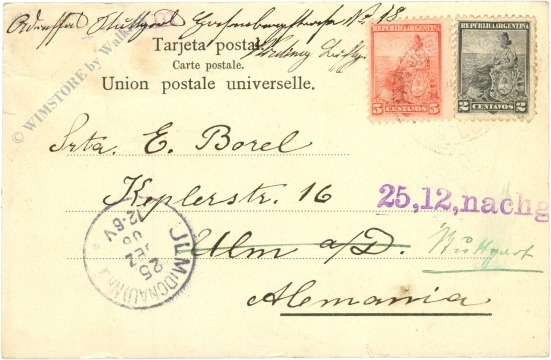 Stuttgart No. 18
Tarjeta postal.
Carte postale.
Union postale universelle.
REPUBLICA ARGENTINA
5 CENTAVOS 5
REPUBLICA ARGENTINA
2 CENTAVOS 2
© WIMSTORE by Walk
Srta. E. Borel
Keplerstr. 16
25,12,nachg
Ulm a/D. Stuttgart
Alemania
ULM (DONAU) No.
25
DEZ
06
12-6V